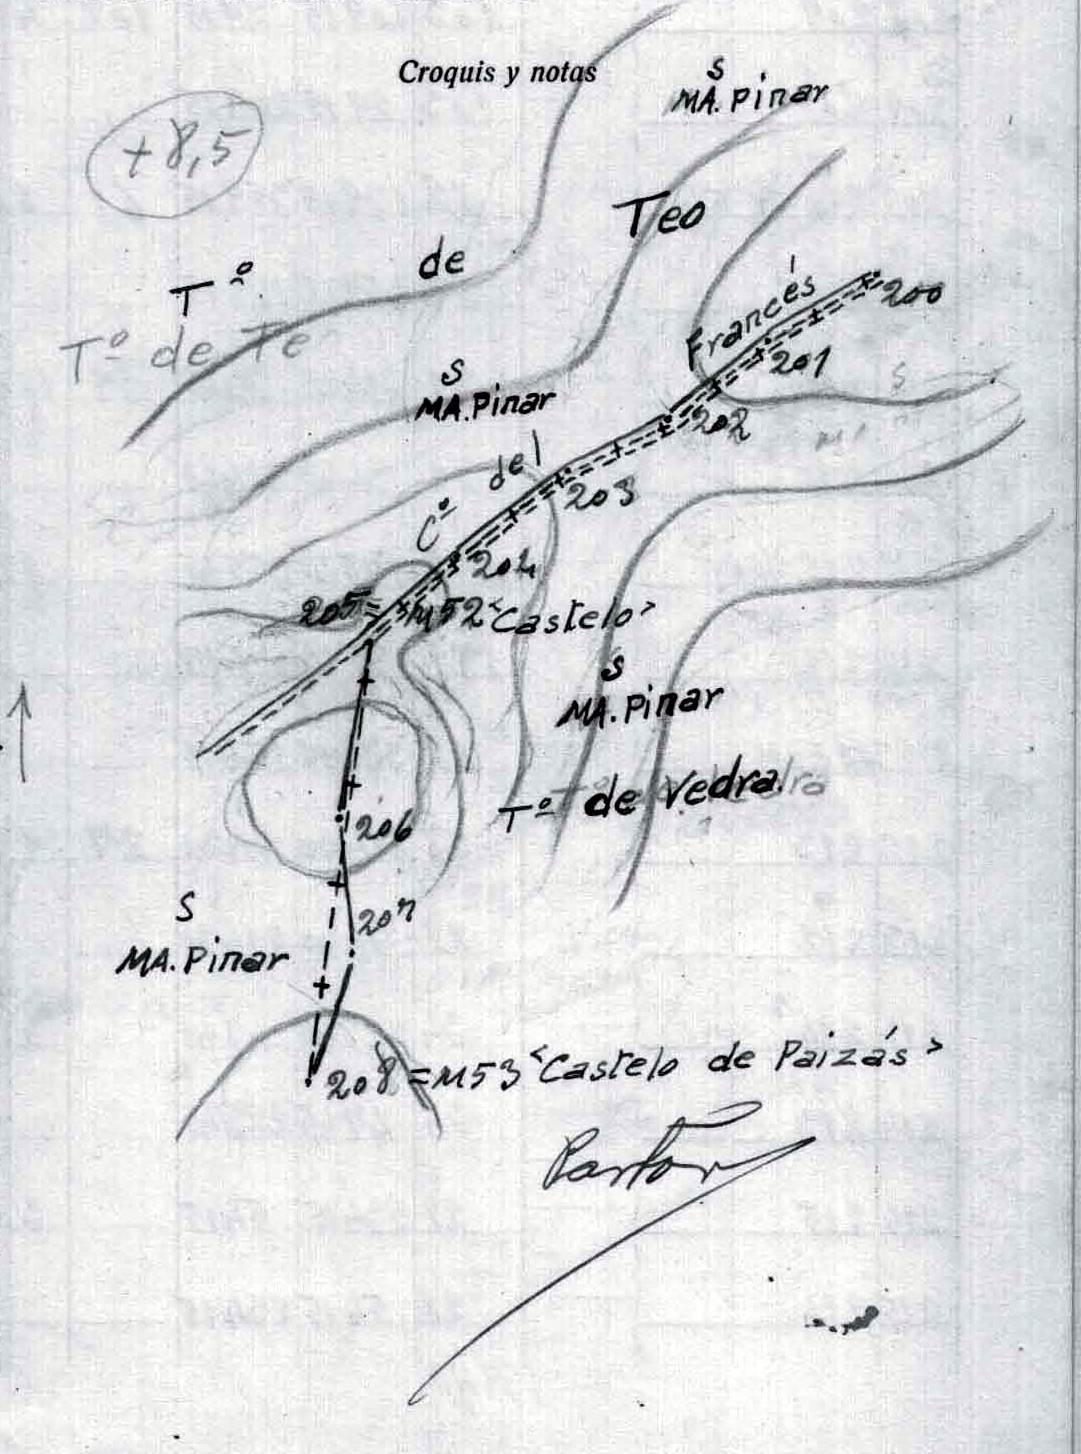 Croquis y notas
S
MA. Pinar
+8,5
Teo
Tº de
Tº de Te
Francés
200
201
S
MA. Pinar
202
S
del
203
Cº
204
205=M52 "Castelo"
S
MA. Pinar
Tº de Vedra.
206
S
207
MA. Pinar
208=M53 "Castelo de Paizás"
Pastor